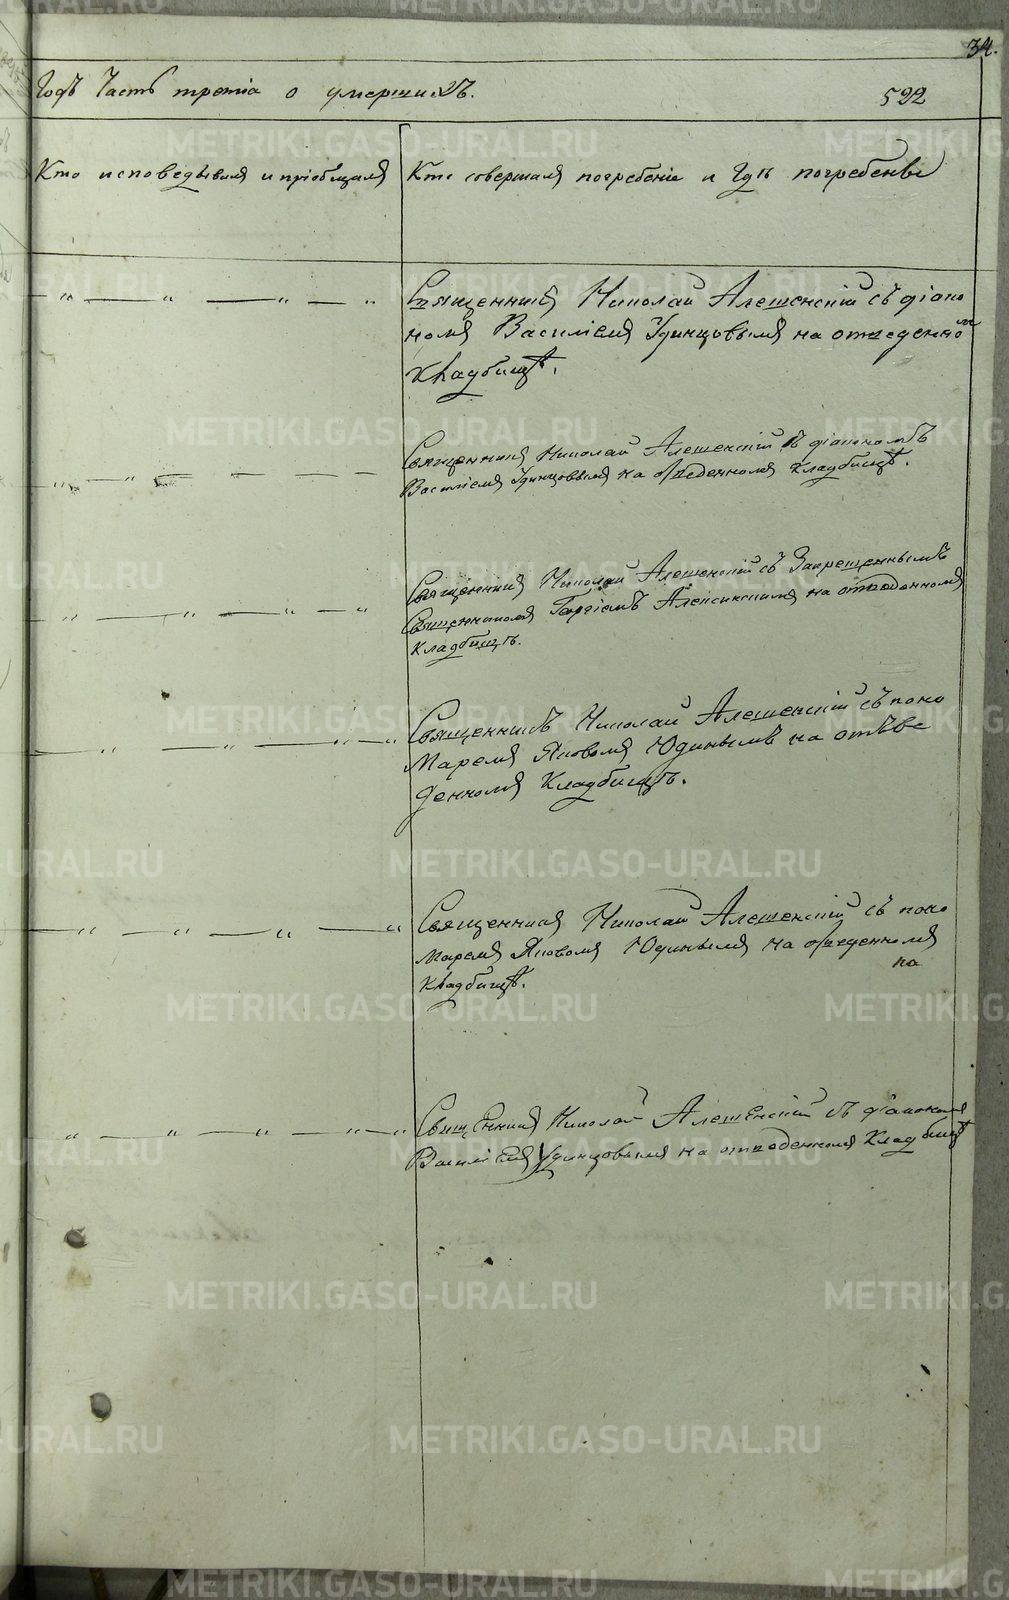 34.
Годъ Часть третіа о умершихъ.
522
Кто исповедывалъ и пріобщалъ
Кто совершалъ погребеніе и гдѣ погребены
Священникъ Николай Алешенскій съ діако
номъ Василіемъ Удинцовымъ на отведенно
мъ
кладбищѣ.
Священникъ Николай Алешенскій съ діакономъ
Василіемъ Удинцовымъ на отведенномъ кладбищѣ.
Священникъ Николай Алешенскій съ Запрещеннымъ
Священникомъ Георгіемъ на отведенномъ
кладбищѣ.
Священникъ Николай Алешенскій съ поно
маремъ Яковомъ Юдинымъ на отве
денномъ Кладбищѣ.
Священникъ Николай Алешенскій съ поно
маремъ Яковомъ Юдинымъ на отведенномъ
на
кладбищѣ.
Священникъ Николай Алешенскій съ діакономъ
Василіемъ Удинцовымъ на отведенномъ кладбищѣ
METRIKI.GASO-URAL.RU